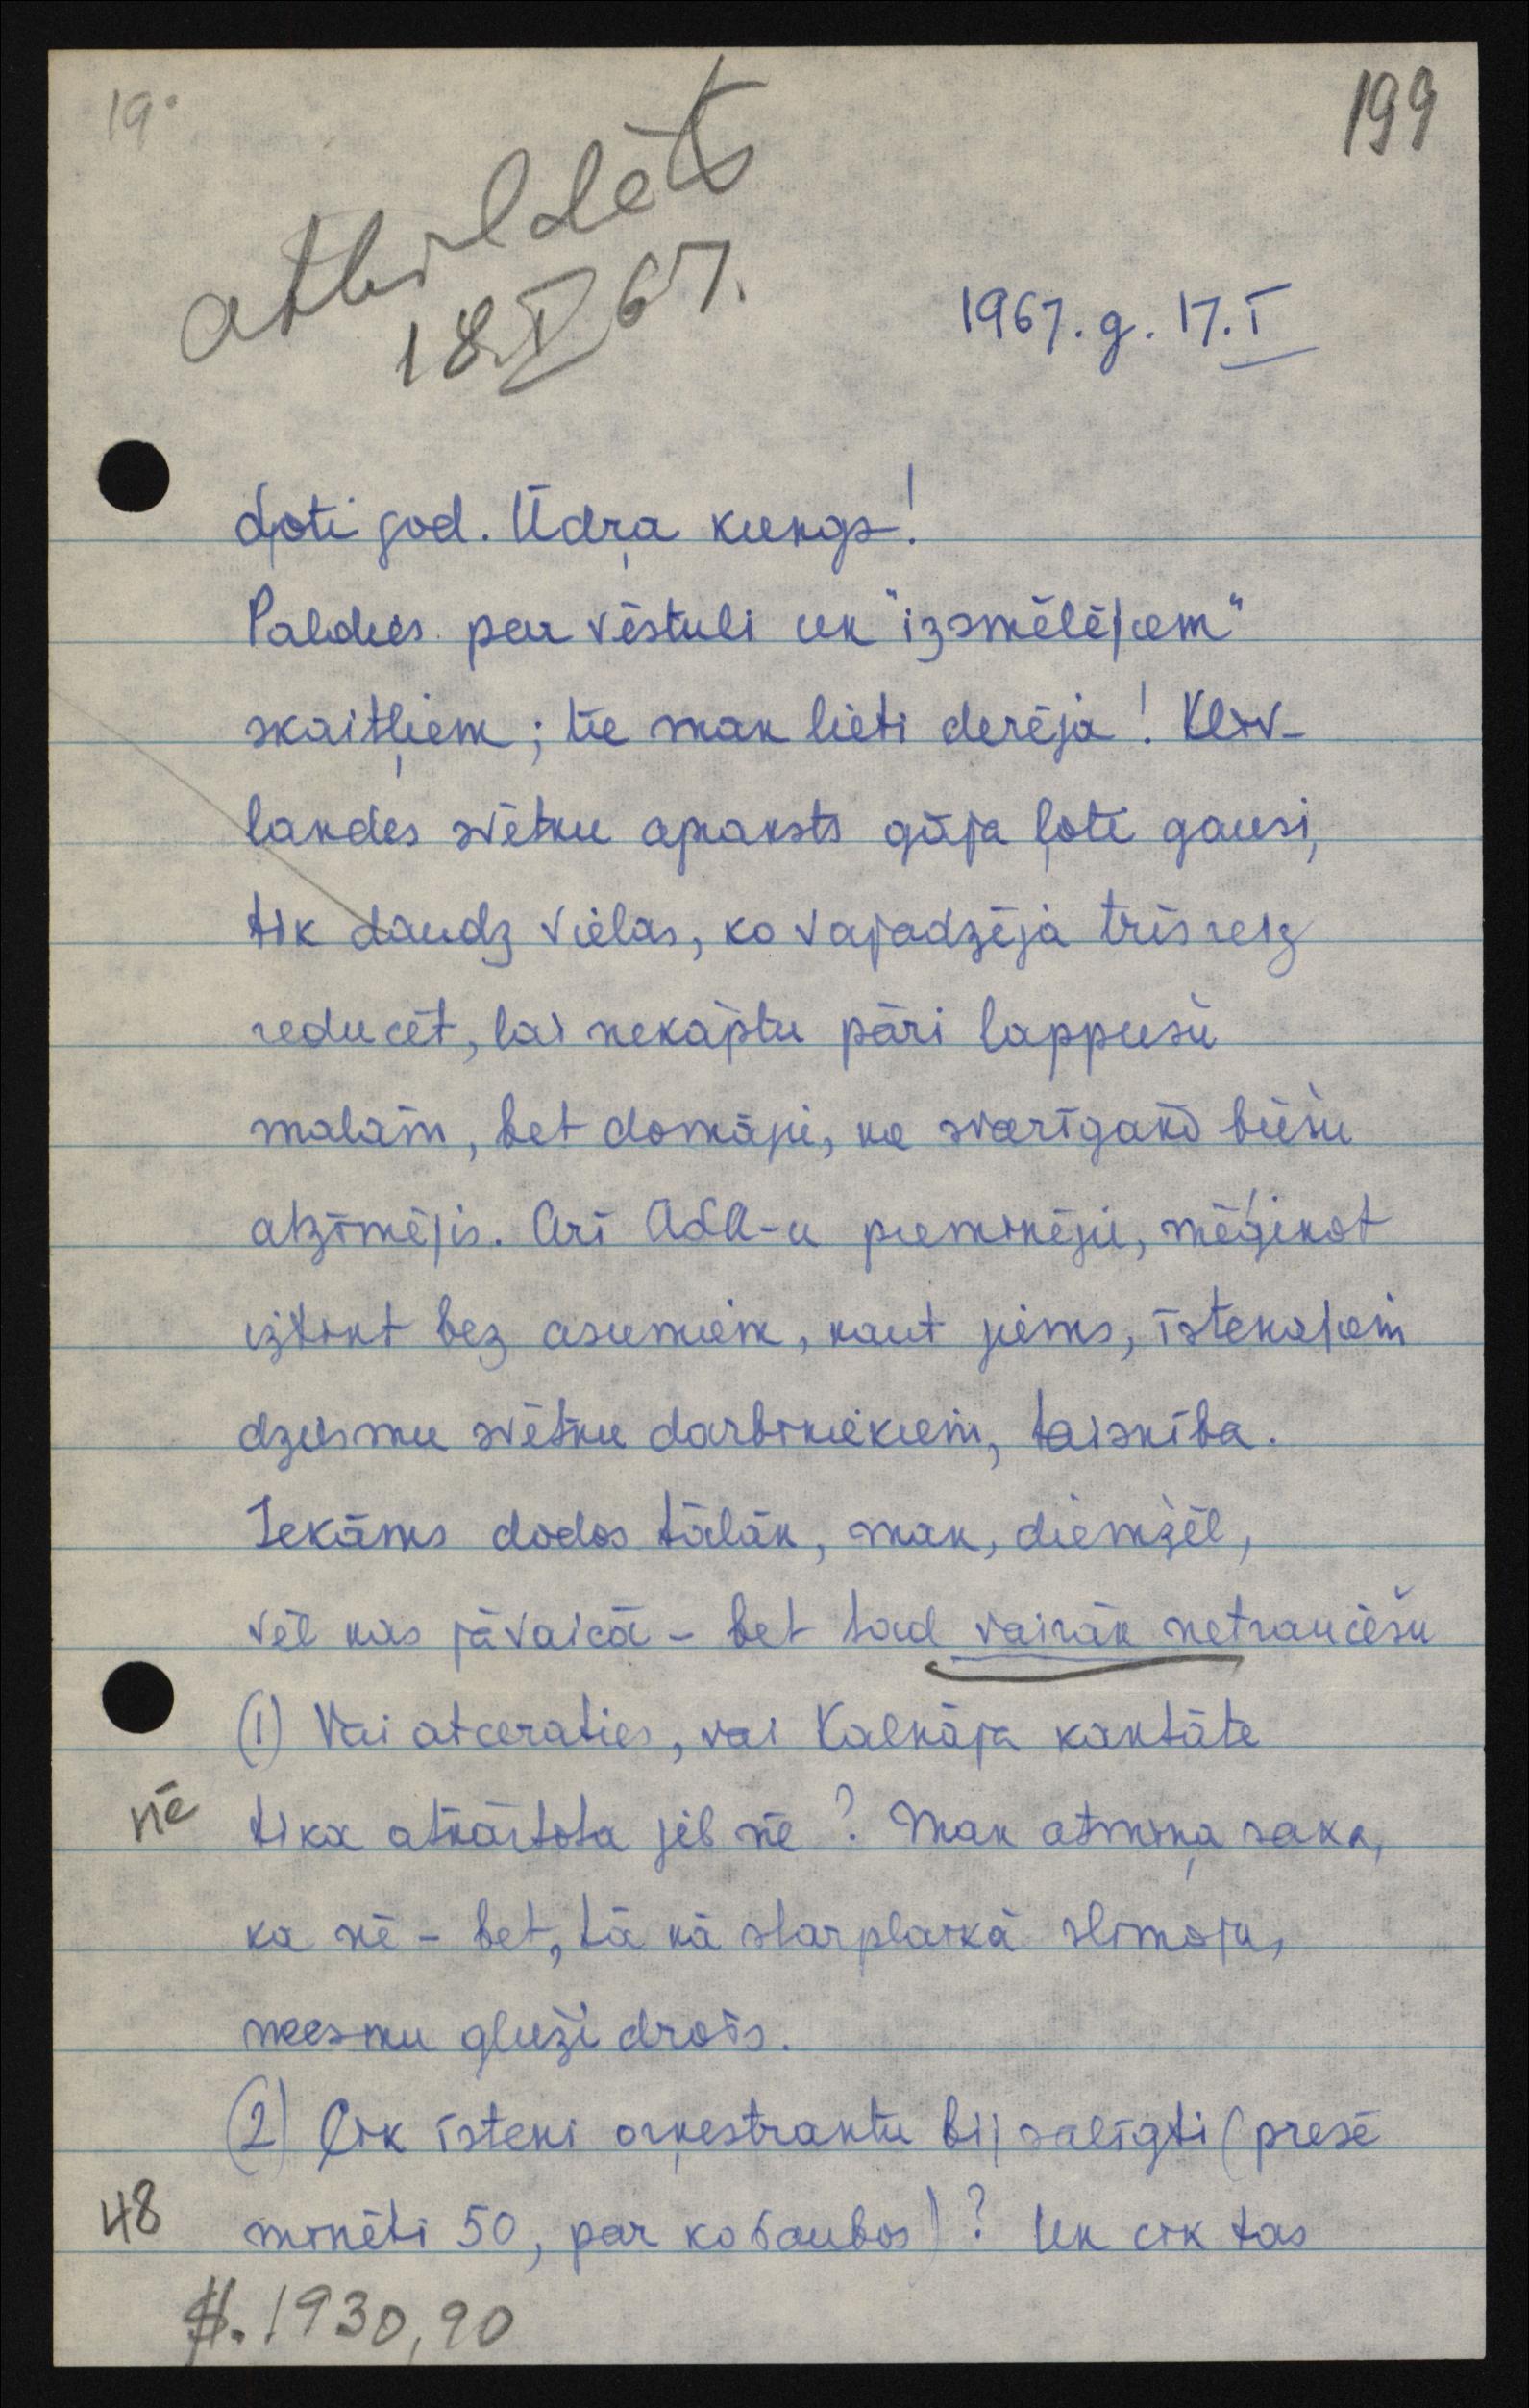 19.
199
atbildēts
18.I 67.
1967. g. 17. I
Ļoti god. Ūdŗa kungs!
Paldies par vēstuli un "izsmēlējiem"
skaitļiem; tie man lieti derēja! Klīv-
landes svētku apraksts gāja ļoti gausi,
tik daudz vielas, ko vajadzēja trīsreiz
reducēt, lai nekāptu pāri lappušu
malām, bet domāju, ka svarīgāko būšu
atzīmējis. Arī ALA-u pieminēju, mēģinot
iztikt bez asumiem, kaut jums, īstenajiem
dziesmu svētku darbiniekiem, taisnība.
Iekāms dodos tālāk, man, diemžēl,
vēl kas jāvaicā - bet tad vairāk netraucēšu
(1) Vai atceraties, vai Kalnāja kantāte
nē
tika atkārtota jeb nē? Man atmiņa saka,
ka nē - bet, tā kā starplaikā slimoju,
neesmu gluži drošs.
(2) Cik īsteni orķestrantu bij salīgti (presē
48
minēti 50, par ko šaubos)? Un cik tas
$. 1930,90